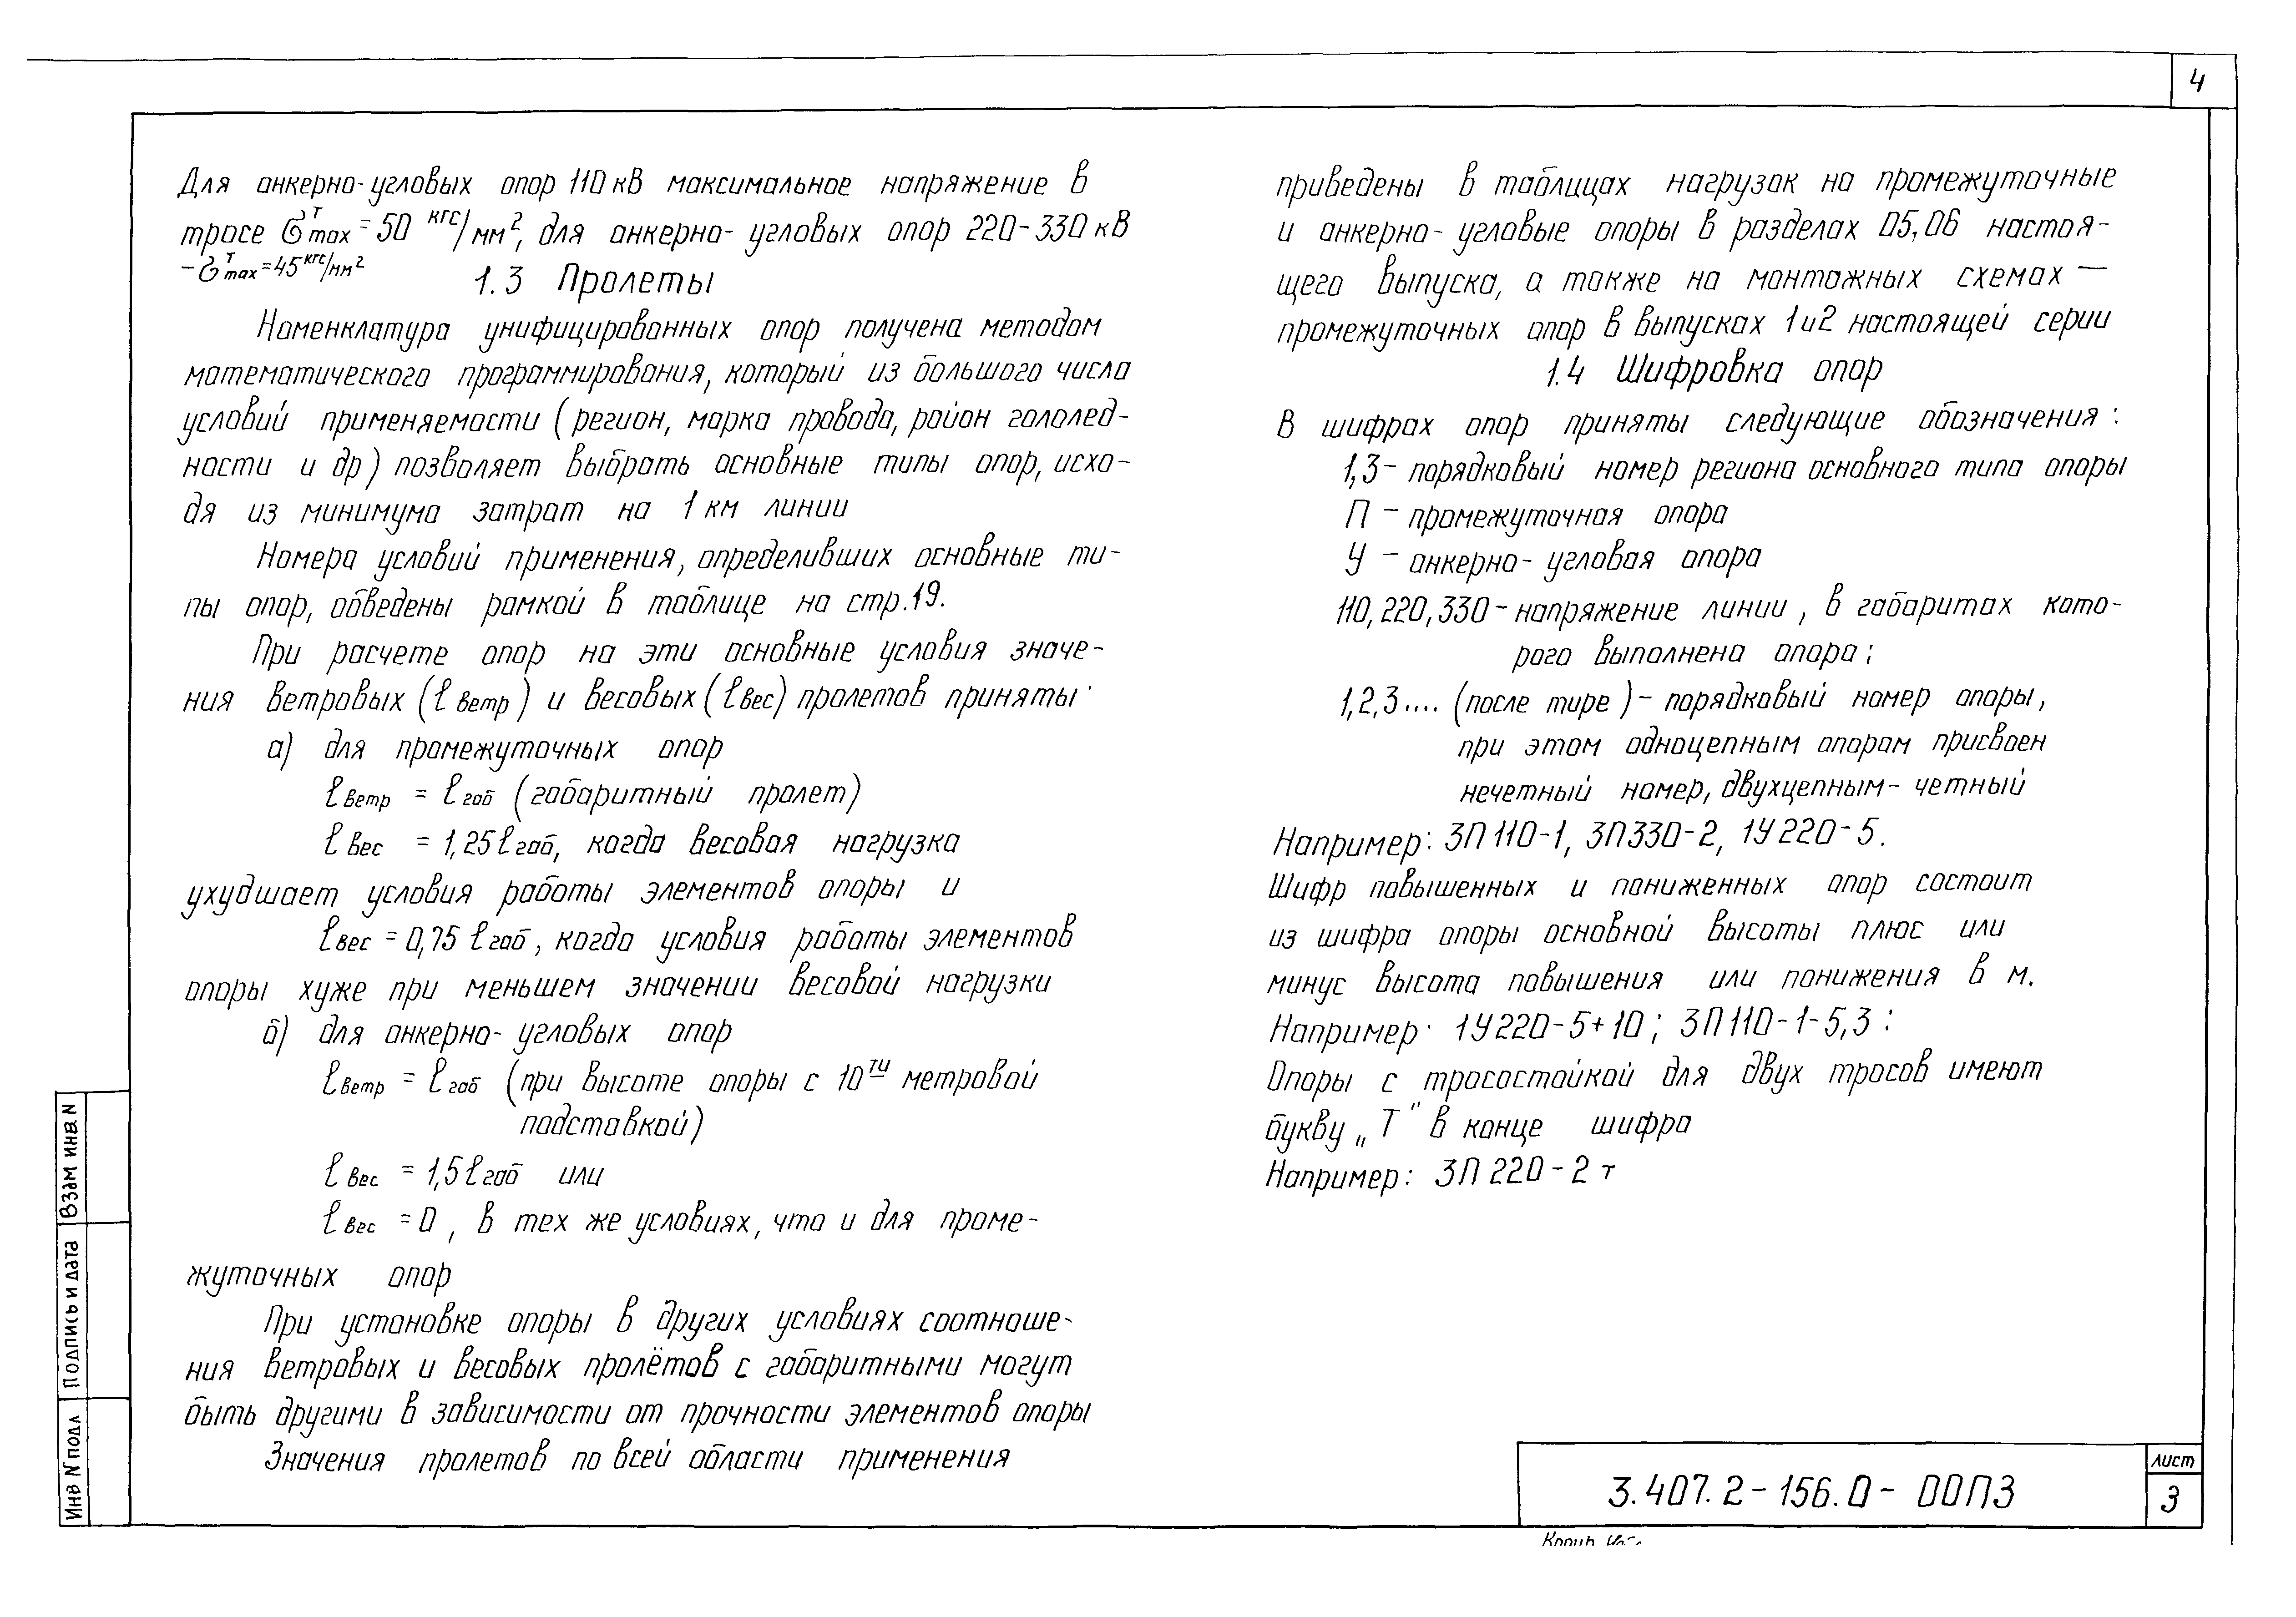 4
Для анкерно-угловых опор 110 кВ максимальное напряжение в
тросе σᵀmax = 50 кгс/мм², для анкерно-угловых опор 220-330 кВ
- σᵀmax = 45 кгс/мм²
1.3 Пролеты
Номенклатура унифицированных опор получена методом
математического программирования, который из большого числа
условий применяемости (регион, марка провода, район гололед-
ности и др) позволяет выбрать основные типы опор, исхо-
дя из минимума затрат на 1 км линии
Номера условий применения, определивших основные ти-
пы опор, обведены рамкой в таблице на стр.19.
При расчете опор на эти основные условия значе-
ния ветровых (ℓ ветр) и весовых (ℓ вес) пролетов приняты·
а) для промежуточных опор
ℓ ветр = ℓ габ (габаритный пролет)
ℓ вес = 1,25 ℓ габ, когда весовая нагрузка
ухудшает условия работы элементов опоры и
ℓ вес = 0,75 ℓ габ, когда условия работы элементов
опоры хуже при меньшем значении весовой нагрузки
б) для анкерно-угловых опор
ℓ ветр = ℓ габ (при высоте опоры с 10ти метровой
подставкой)
ℓ вес = 1,5 ℓ габ или
ℓ вес = 0, в тех же условиях, что и для проме-
жуточных опор
При установке опоры в других условиях соотноше-
ния ветровых и весовых пролётов с габаритными могут
быть другими в зависимости от прочности элементов опоры
Значения пролетов по всей области применения
приведены в таблицах нагрузок на промежуточные
и анкерно-угловые опоры в разделах 05,06 настоя-
щего выпуска, а также на монтажных схемах —
промежуточных опор в выпусках 1 и 2 настоящей серии
1.4 Шифровка опор
В шифрах опор приняты следующие обозначения:
1,3- порядковый номер региона основного типа опоры
П - промежуточная опора
У - анкерно-угловая опора
110, 220, 330 - напряжение линии, в габаритах кото-
рого выполнена опора;
1,2,3.... (после тире) - порядковый номер опоры,
при этом одноцепным опорам присвоен
нечетный номер, двухцепным - четный
Например: 3П110-1, 3П330-2, 1У220-5.
Шифр повышенных и пониженных опор состоит
из шифра опоры основной высоты плюс или
минус высота повышения или понижения в м.
Например· 1У220-5+10; 3П110-1-5,3:
Опоры с тросостойкой для двух тросов имеют
букву „Т" в конце шифра
Например: 3П220-2т
Взам инв N
Подпись и дата
Инв N подл
3.407.2-156.0-00ПЗ
лист
3